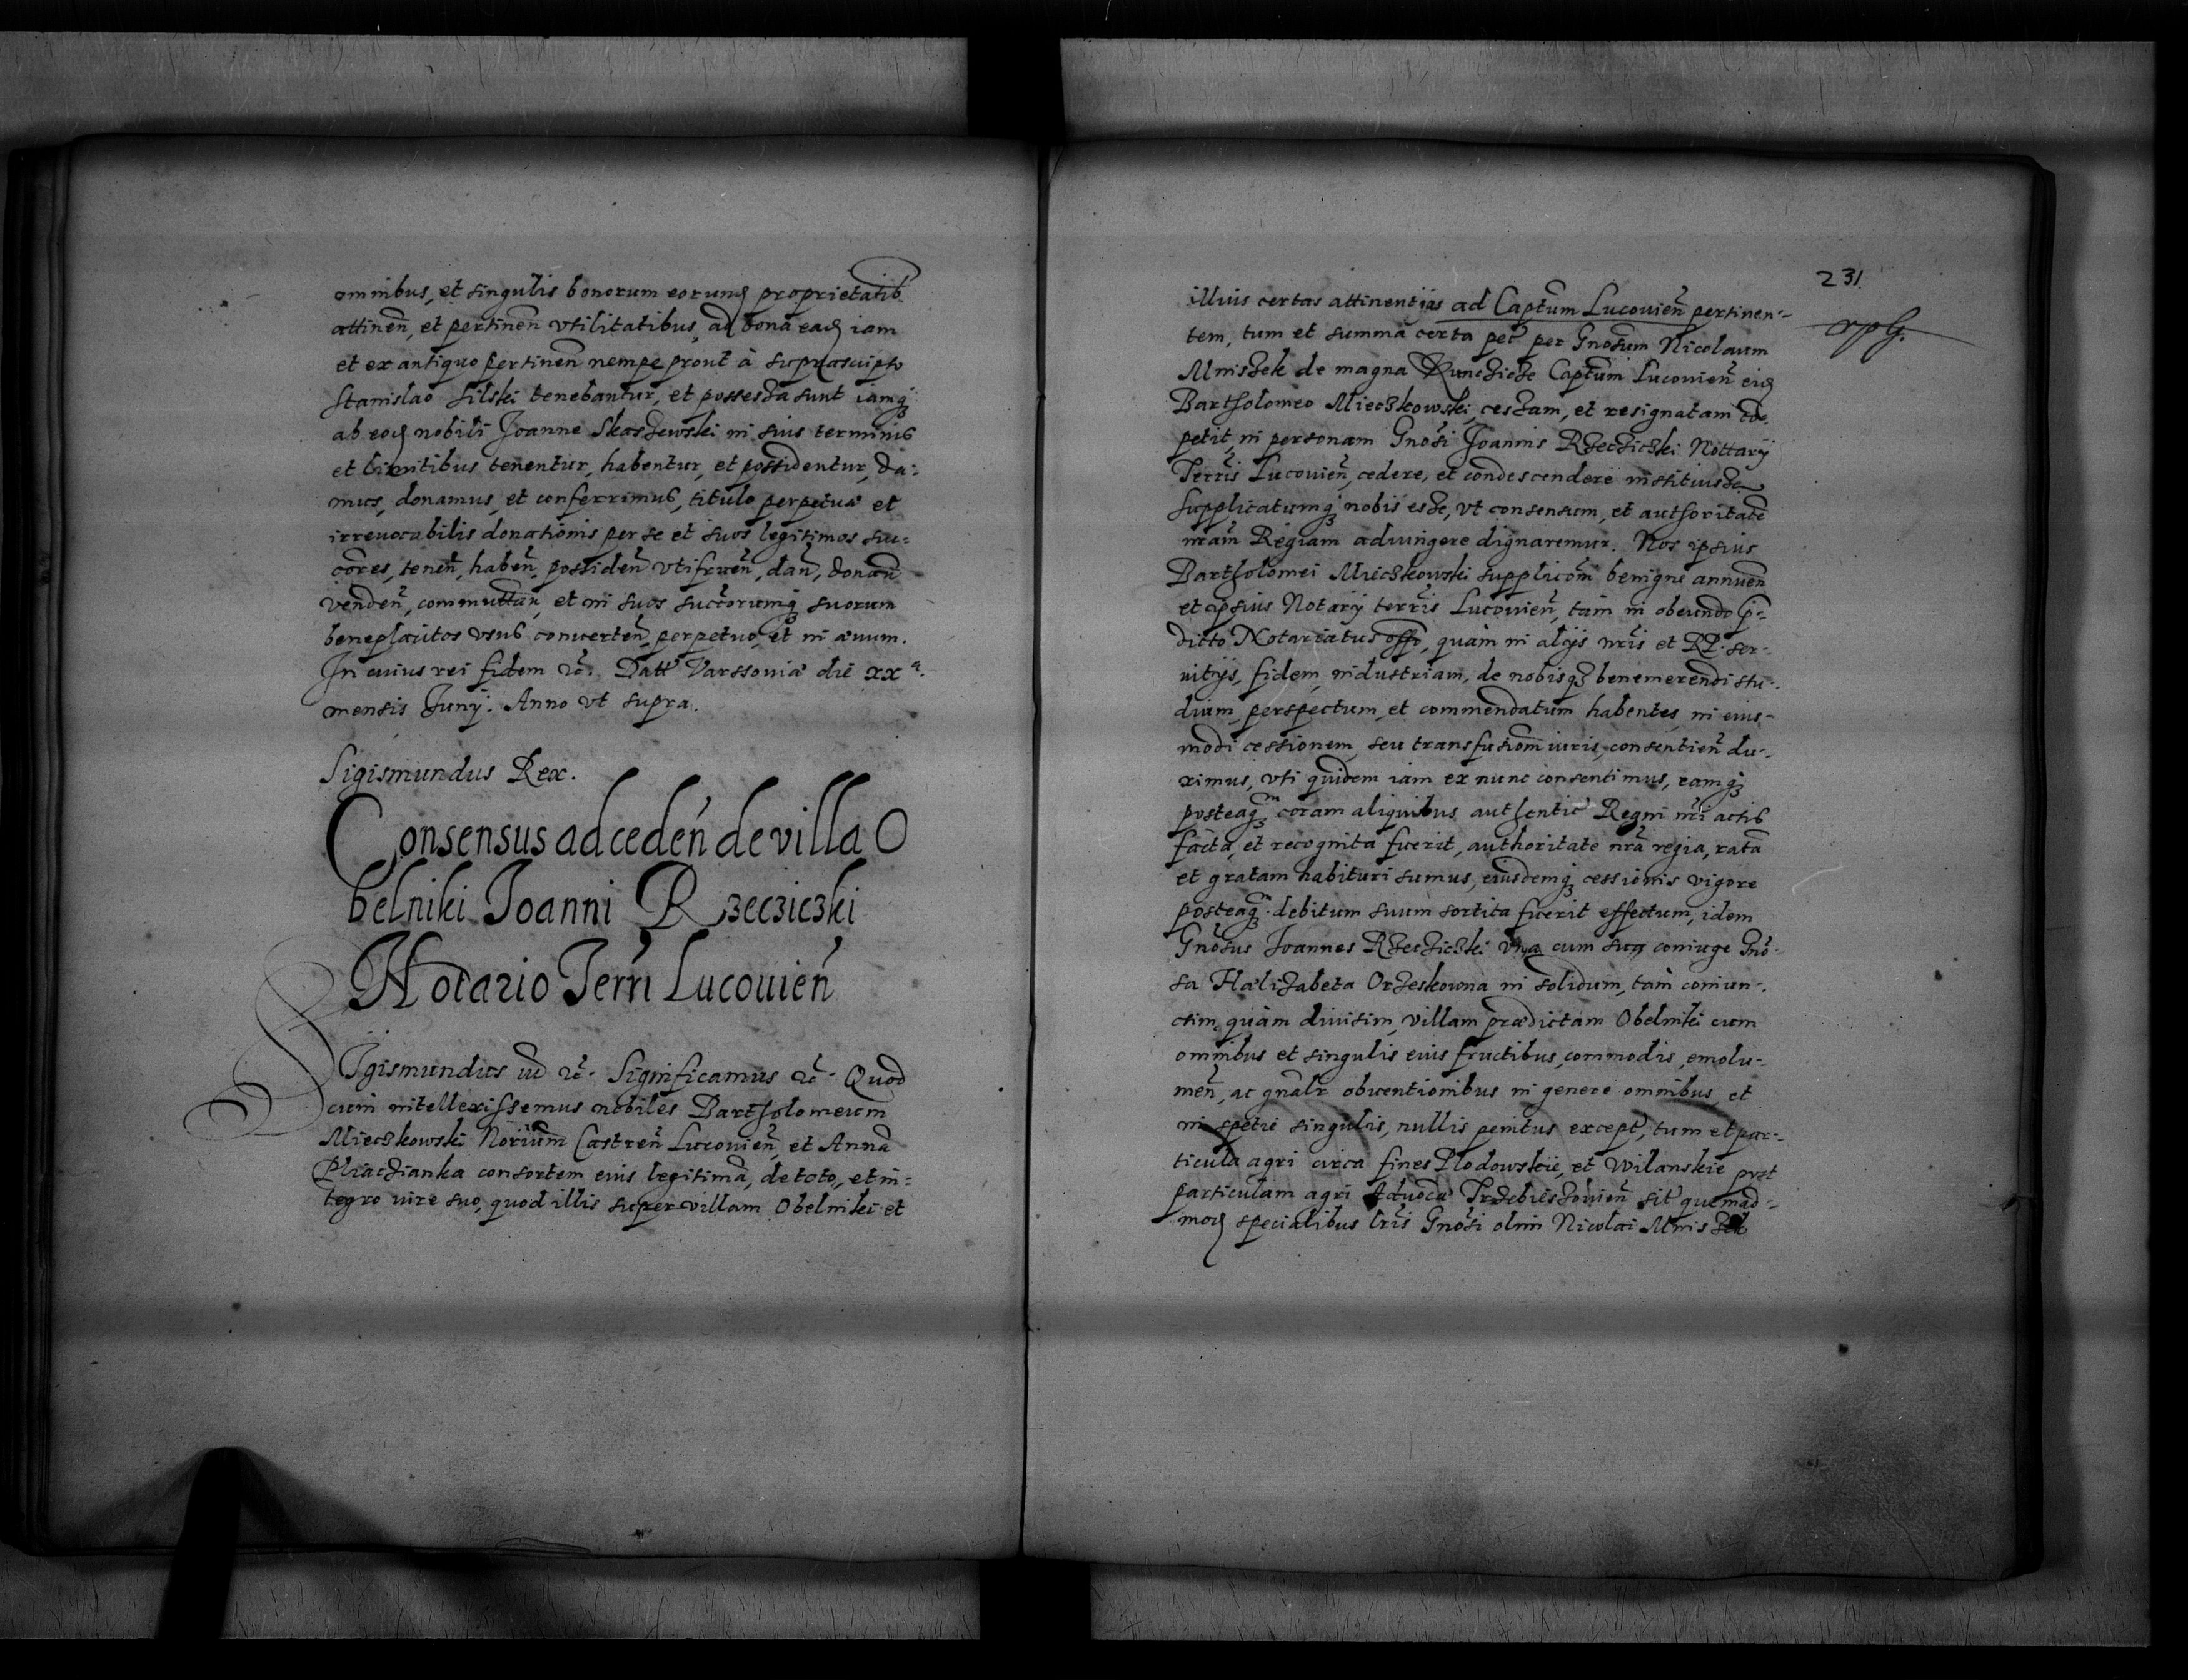 omnibus, et singulis bonorum eorund proprietatib
attineñ, et pertineñ vtilitatibus, ad bona ead iam
et ex antiquo pertineñ nempe prout à suprascripto
Stanislao Silski tenebantur, et possessa sunt iamq
ab eod nobili Joanne Skaszewski in suis terminis
et limitibus tenentur, habentur, et possidentur, da:
mus, donamus, et conferrimus, titulo perpetuæ et
irreuocabilis donationis per se et suos legitimos suc:
cores, teneñ, habeñ, possideñ vtifrueñ, dañ, donañ
vendeñ, commuttañ, et in suos succorumq suorum
beneplacitos vsus conuerteñ, perpetuo, et in æuum.
In cuius rei fidem etc. Datt Varssouiæ die xx a.
mensis Junij. Anno vt supra.
Sigismundus Rex.
Consensus ad cedeń de villa O
belniki Joanni Rzecziczki
Notario Terri Lucouień
Sigismundus etc. Significamus etc. Quod
cum intellexissemus nobiles Bartholomeum
Mieczkowski Norium Castreñ Lucouieñ, et Annã
Pliaczianka consortem eius legitimã, de toto, et in:
tegro iure suo, quod illis super villam Obelniki et
231
illius certas attinentijas ad Captum Lucouieñ pertinen:
tem, tum et summa certa pet per Gnosum Nicolaum
Mniszek de magna Kunczicze Captum Lucouieñ eid
Bartholomeo Mieczkowski, cessam, et resignatam
petit, in personam Gnosi Joannis Rzecziczki Nottarij
Terris Lucouieñ, cedere, et condescendere
Supplicatumq nobis esse, vt consensum, et authoritatẽ
nram Regiam adiungere dignaremur. Nos ipsius
Bartholomei Mieczkowski supplicom benigne annueñ
et ipsius Notarij terris Lucouieñ, tam in obeundo p:
dicto Notariatus offo, quàm in alijs nris et RP. ser:
uitijs, fidem, industriam, de nobisq benemerendi stu:
dium, perspectum, et commendatum habentes, in eius:
modi cessionem, seu transfusiom iuris, consentieñ du:
ximus, vti quidem iam ex nunc consentimus, eamq
posteaq m coram aliquibus authentic Regni nri actis
facta, et recognita fuerit, authoritate nrã regia, ratã
et gratam habituri sumus, eiusdemq cessionis vigore
posteaq m debitum suum sortita fuerit effectum, idem
Gnosus Joannes Rzecziczki vna cum sua coniuge Gno:
sa Halizabeta Orzeskowna in solidum, tam coniun:
ctim, quàm diuisim, villam prædictam Obelniki cum
omnibus et singulis eius fructibus, commodis, emolu:
meñ, ac gnalr obuentionibus in genere omnibus, et
in spetie singulis, nullis penitus except, tum et par:
ticula agri circa fines Plodowskie, et Wilanskie post
particulam agri Aduoca Trzebieszouieñ sit quemad:
mod specialibus lris Gnosi olim Nicolai Mniszek